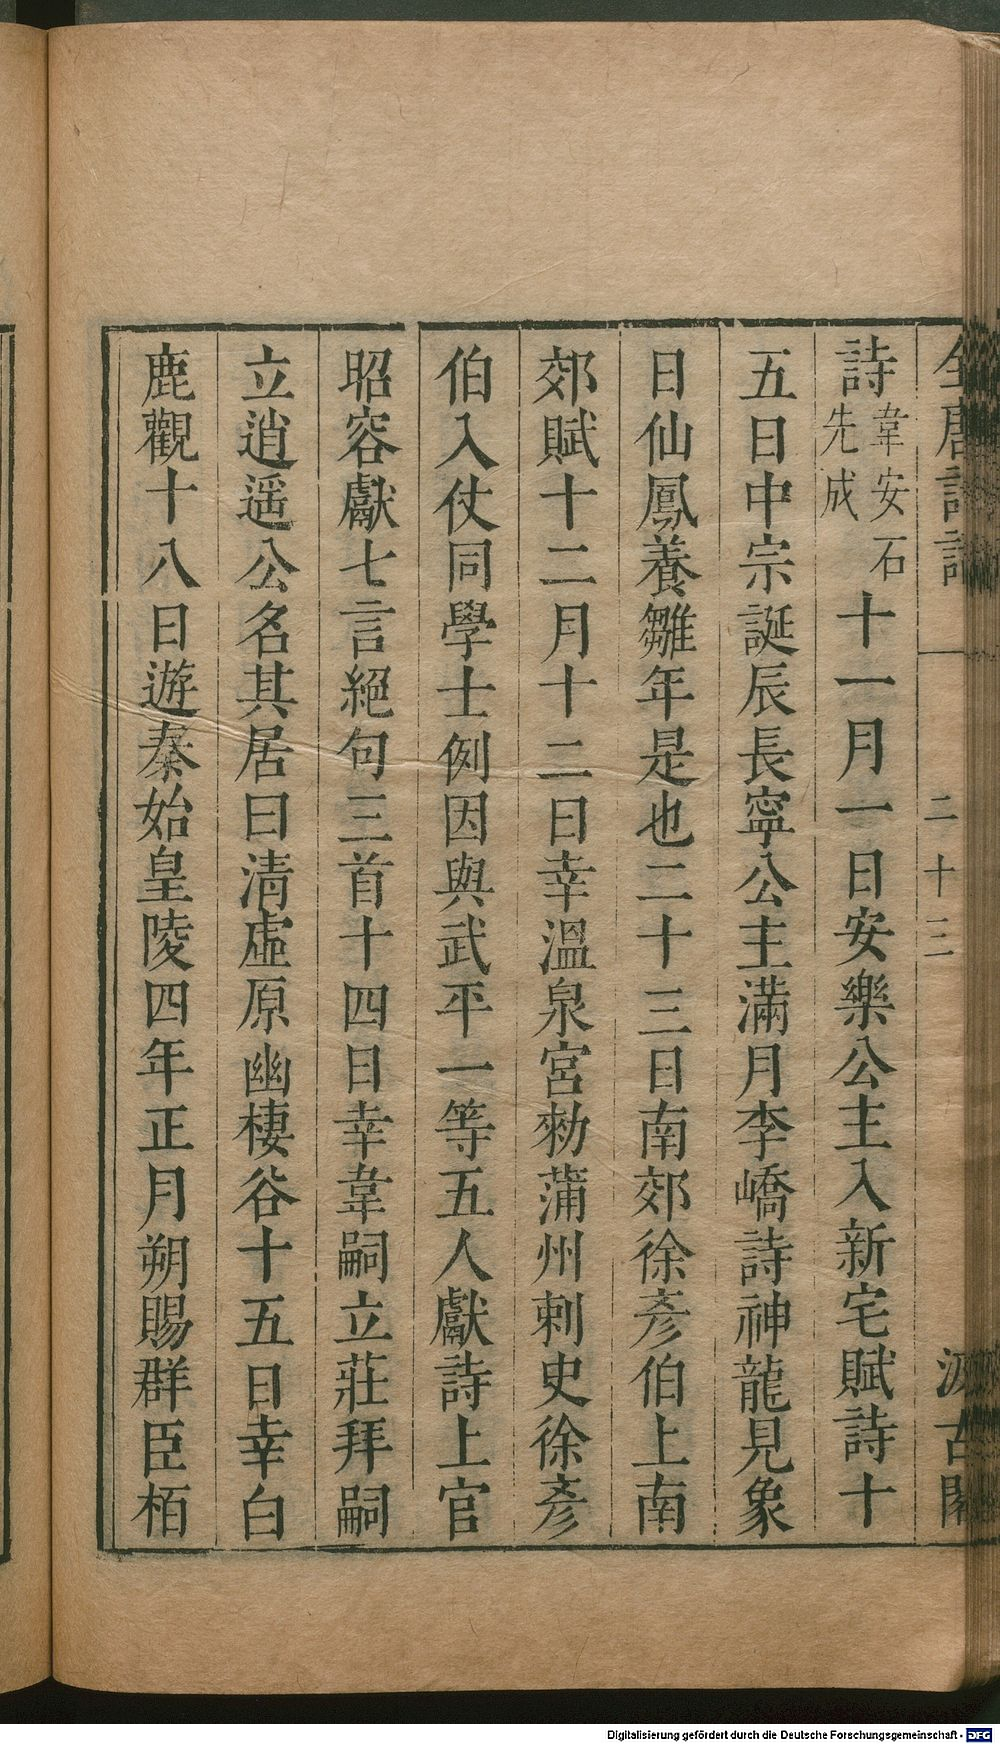 全唐詩話 一 二十三 汲古閣
詩韋安石先成十一月一日安樂公主入新宅賦詩十
五日中宗誕辰長寧公主滿月李嶠詩神龍見象
日仙鳳養雛年是也二十三日南郊徐彥伯上南
郊賦十二月十二日幸溫泉宮勑蒲州刺史徐彥
伯入仗同學士例因與武平一等五人獻詩上官
昭容獻七言絕句三首十四日幸韋嗣立莊拜嗣
立逍遥公名其居曰清虛原幽棲谷十五日幸白
鹿觀十八日遊秦始皇陵四年正月朔賜群臣栢
Digitalisierung gefördert durch die Deutsche Forschungsgemeinschaft - DFG